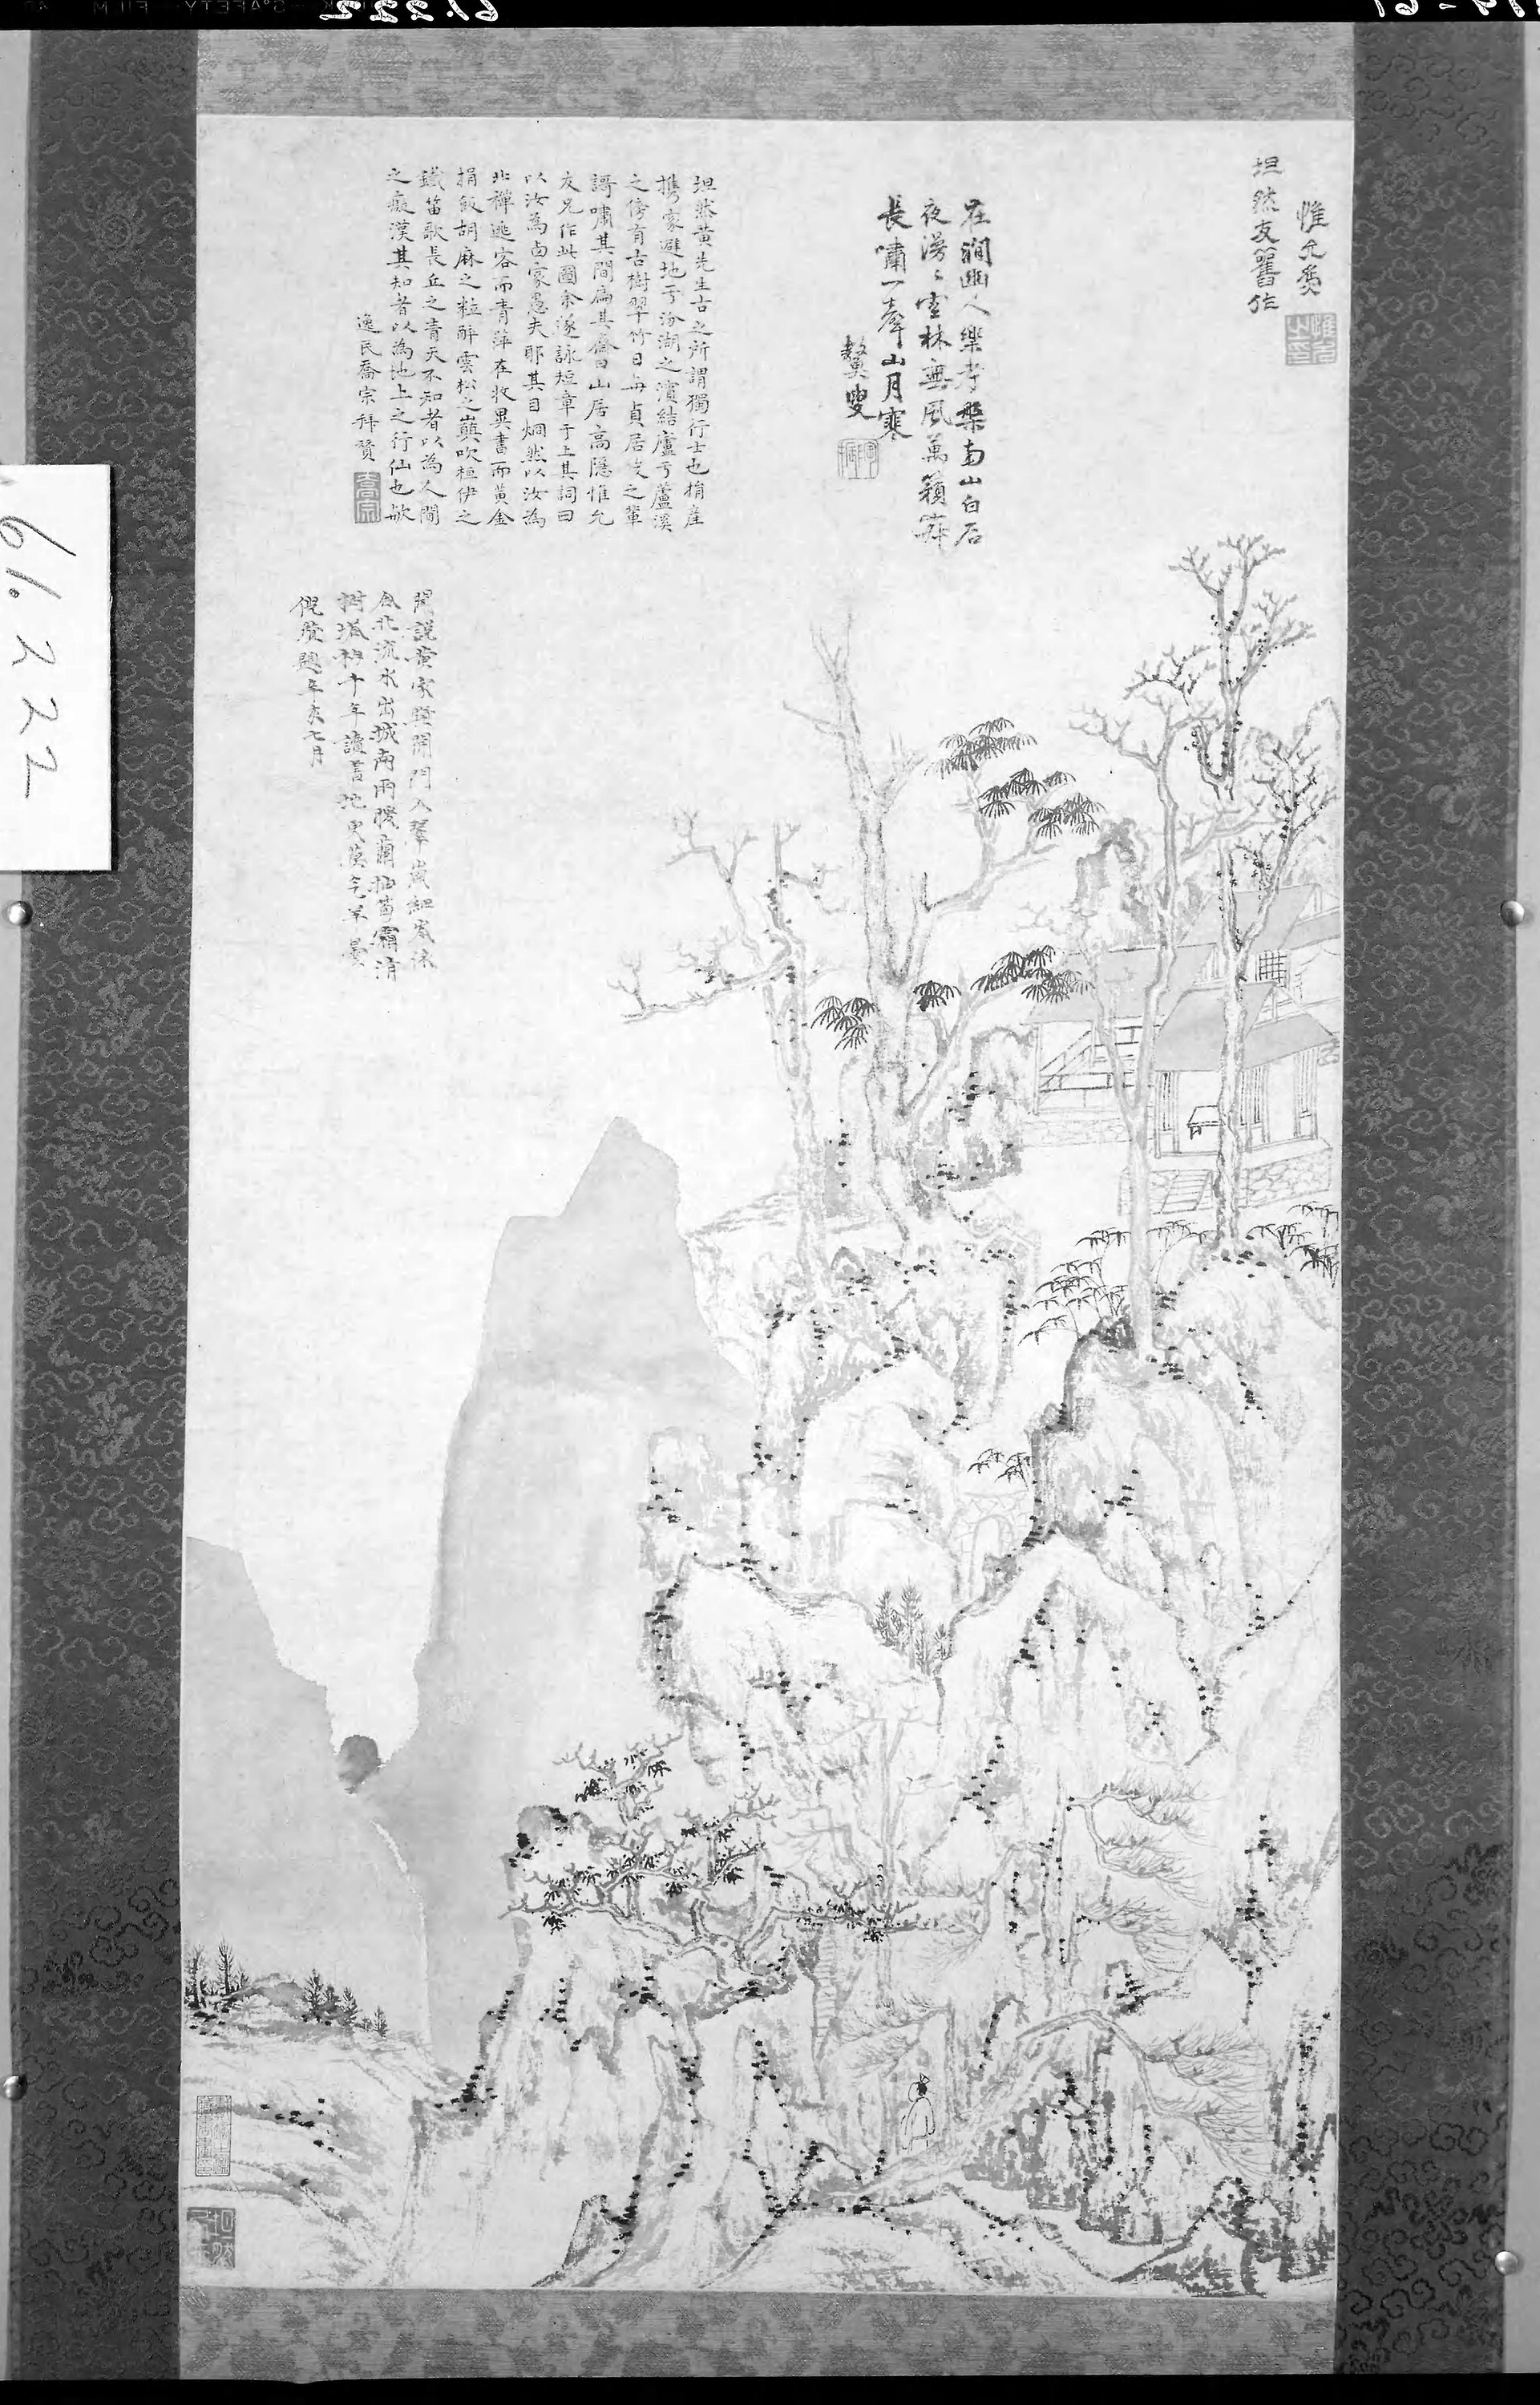 惟允爲
坦然友舊作
在澗幽人樂考槃南山白石
夜漫〻空林無風萬籟寂
長嘯一聲山月寒
龔叟
坦然黃先生古之所謂獨行士也捐産
攜家避地于汾湖之濱結廬于蘆溪
之傍有古樹翠竹日与貞居叟之輩
謌嘯其間扁其齋曰山居高隱惟允
友兄作此圖余遂詠短章于上其詞曰
以汝為卤家愚夫耶其目烱然以汝為
北禪逃客而青萍在收異書而黃金
捐飯胡麻之粒醉雲松之巔吹桓伊之
鐵笛歌長丘之青天不知者以為人間
之癡漢其知者以為地上之行仙也歟
逸民喬宗拜贊
聞說黃家
流水出城南雨後蘭抽筍霜清
樹 十年讀書地
倪瓚題辛亥七月
61.222
61.222